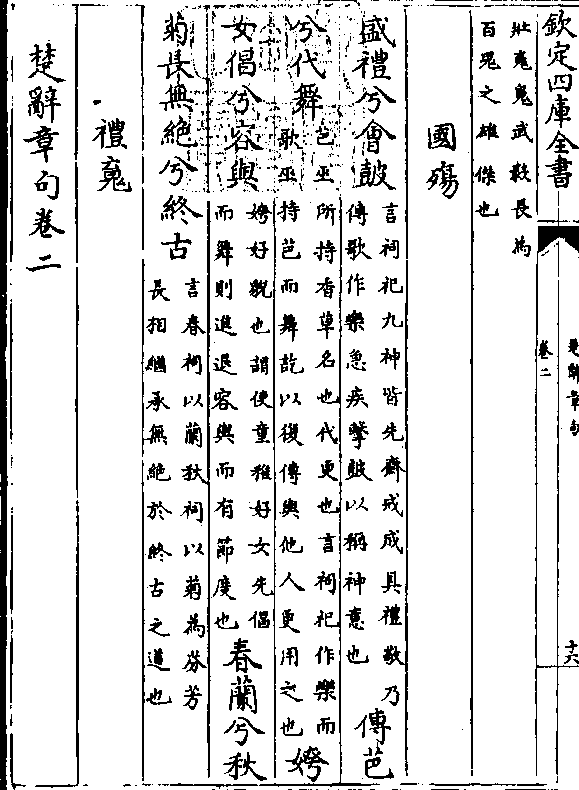 欽定四庫全書
楚辭章句
卷二
十六
壯魂魄武毅長為
百鬼之雄傑也
國殤
盛禮兮會鼓
言祠祀九神皆先齋戒成具禮敬乃
傳歌作樂急疾擊鼓以稱神意也
傳芭
兮代舞
芭巫所持香草名也代更也言祠祀作樂而
歌巫持芭而舞訖以復傳與他人更用之也
姱
女倡兮容與
姱好貌也謂使童稚好女先倡
而舞則進退容與而有節度也
春蘭兮秋
菊長無絶兮終古
言春祠以蘭秋祠以菊為芬芳
長相繼承無絶於終古之道也
禮䰟
楚辭章句卷二